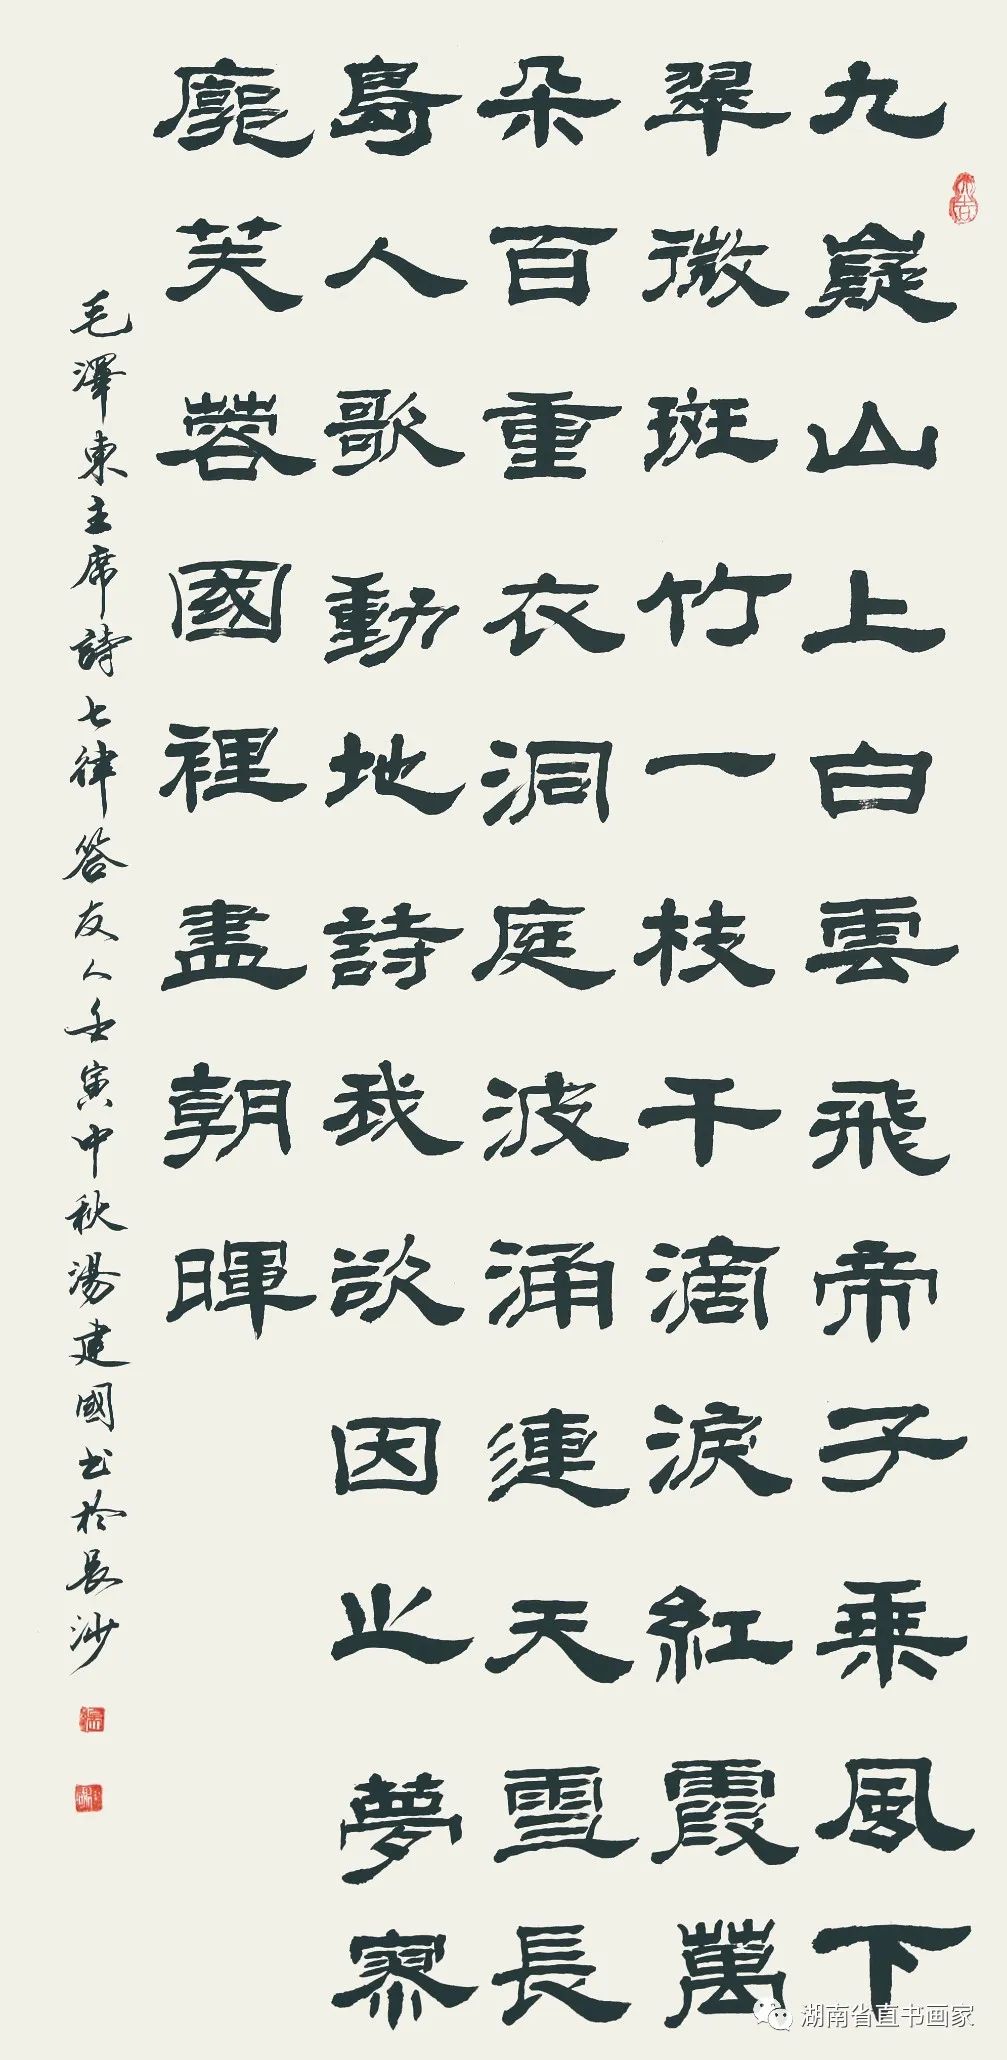 九嶷山上白雲飛帝子乘風下
翠微斑竹一枝千滴淚紅霞萬
朵百重衣洞庭波涌連天雪長
島人歌動地詩我欲因之夢寥
廓芙蓉國裡盡朝暉
毛澤東主席詩七律答友人壬寅中秋湯建國书於長沙
湖南省直书画家